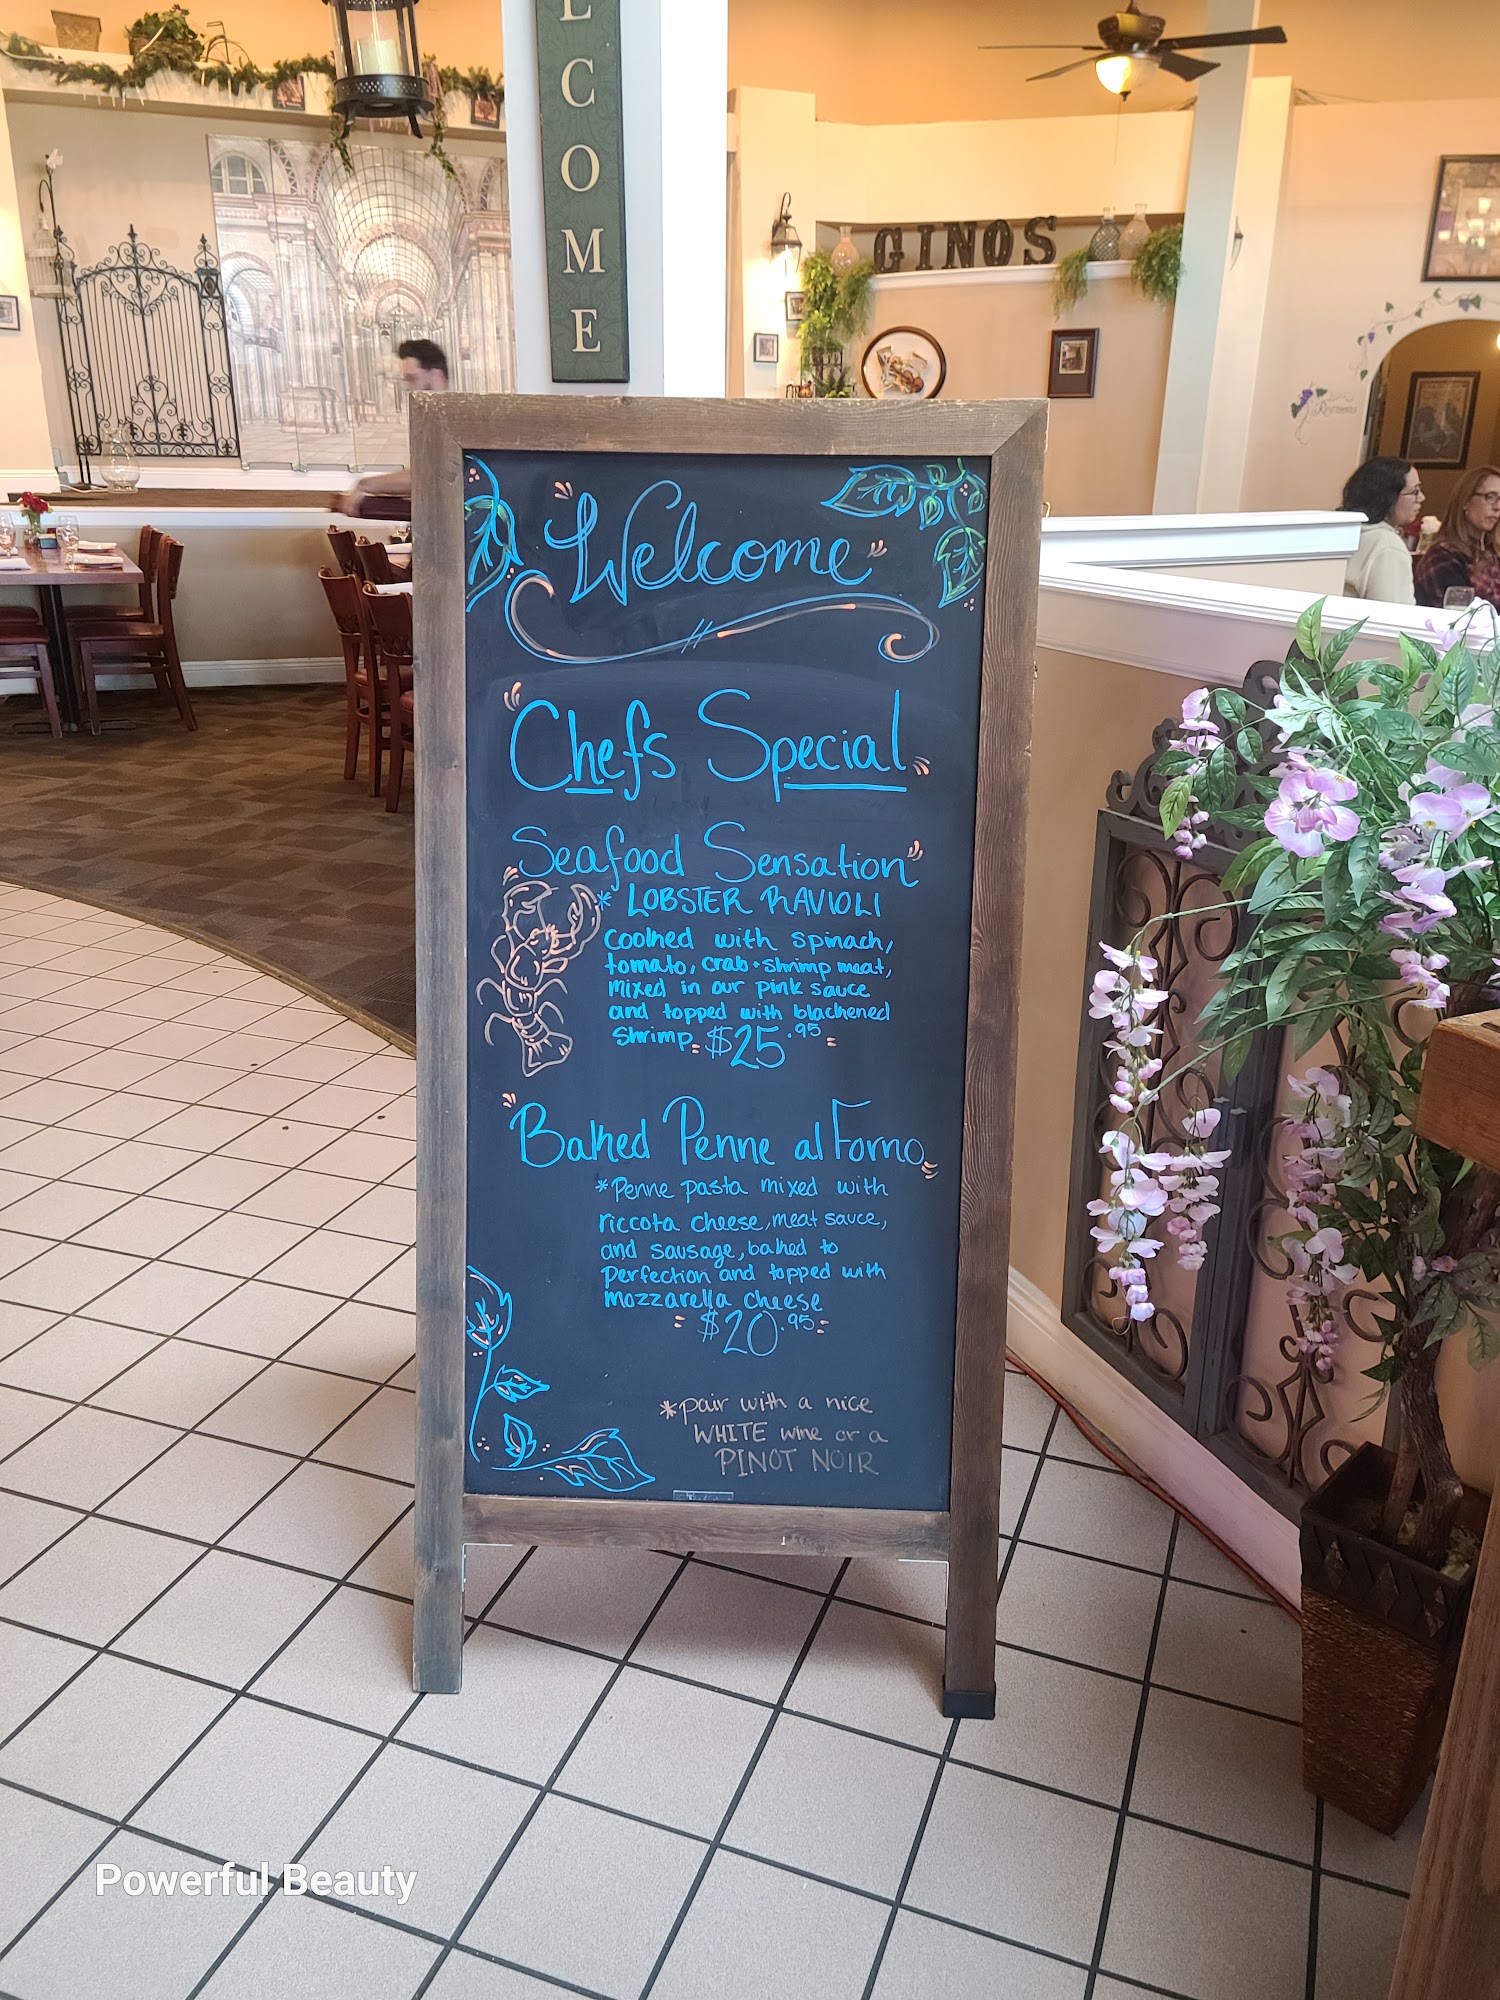 LCOME
GINOS
Welcome
Chefs Special
Seafood Sensation
* LOBSTER RAVIOLI
cooked with spinach,
tomato, crab + shrimp meat,
mixed in our pink sauce
and topped with blackened
shrimp. $25.95
Baked Penne al Forno
*Penne pasta mixed with
riccota cheese, meat sauce,
and sausage, baked to
Perfection and topped with
mozzarella cheese
$20.95
*pair with a nice
WHITE wine or a
PINOT NOIR
Powerful Beauty